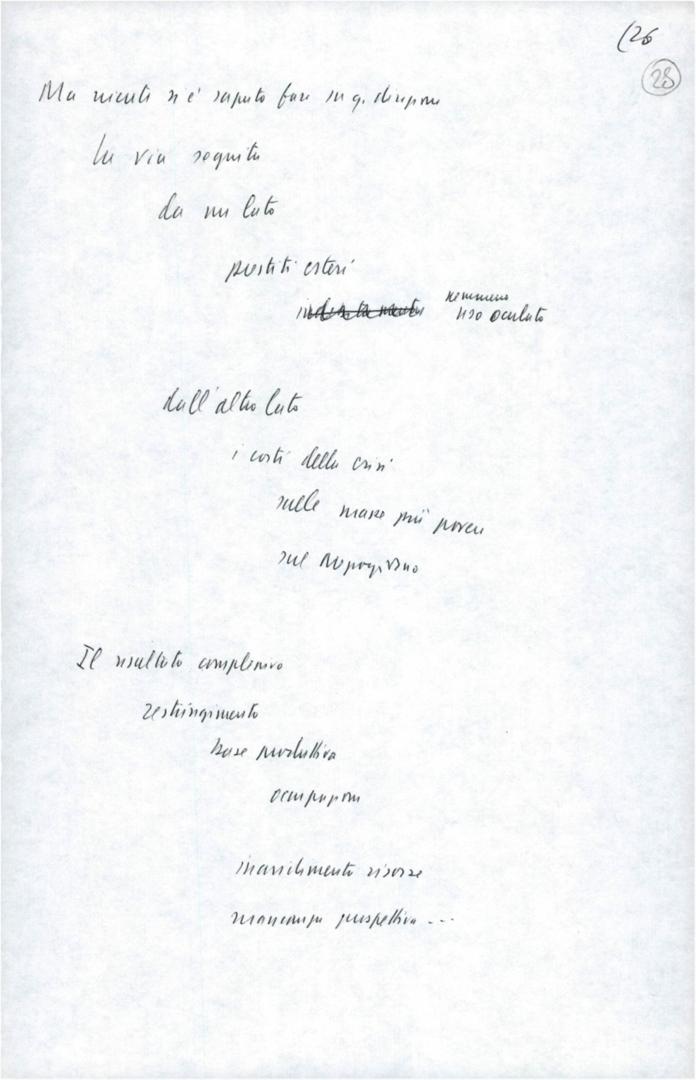 (26
28
Ma niente si è saputo fare in q. direzione
La via seguita
da un lato
prestiti esteri
nemmeno
uso oculato
dall'altro lato
i costi della crisi
sulle masse più povere
sul Mezzogiorno
Il risultato complessivo
restringimento
base produttiva
occupazione
inaridimento risorse
mancanza prospettiva ...